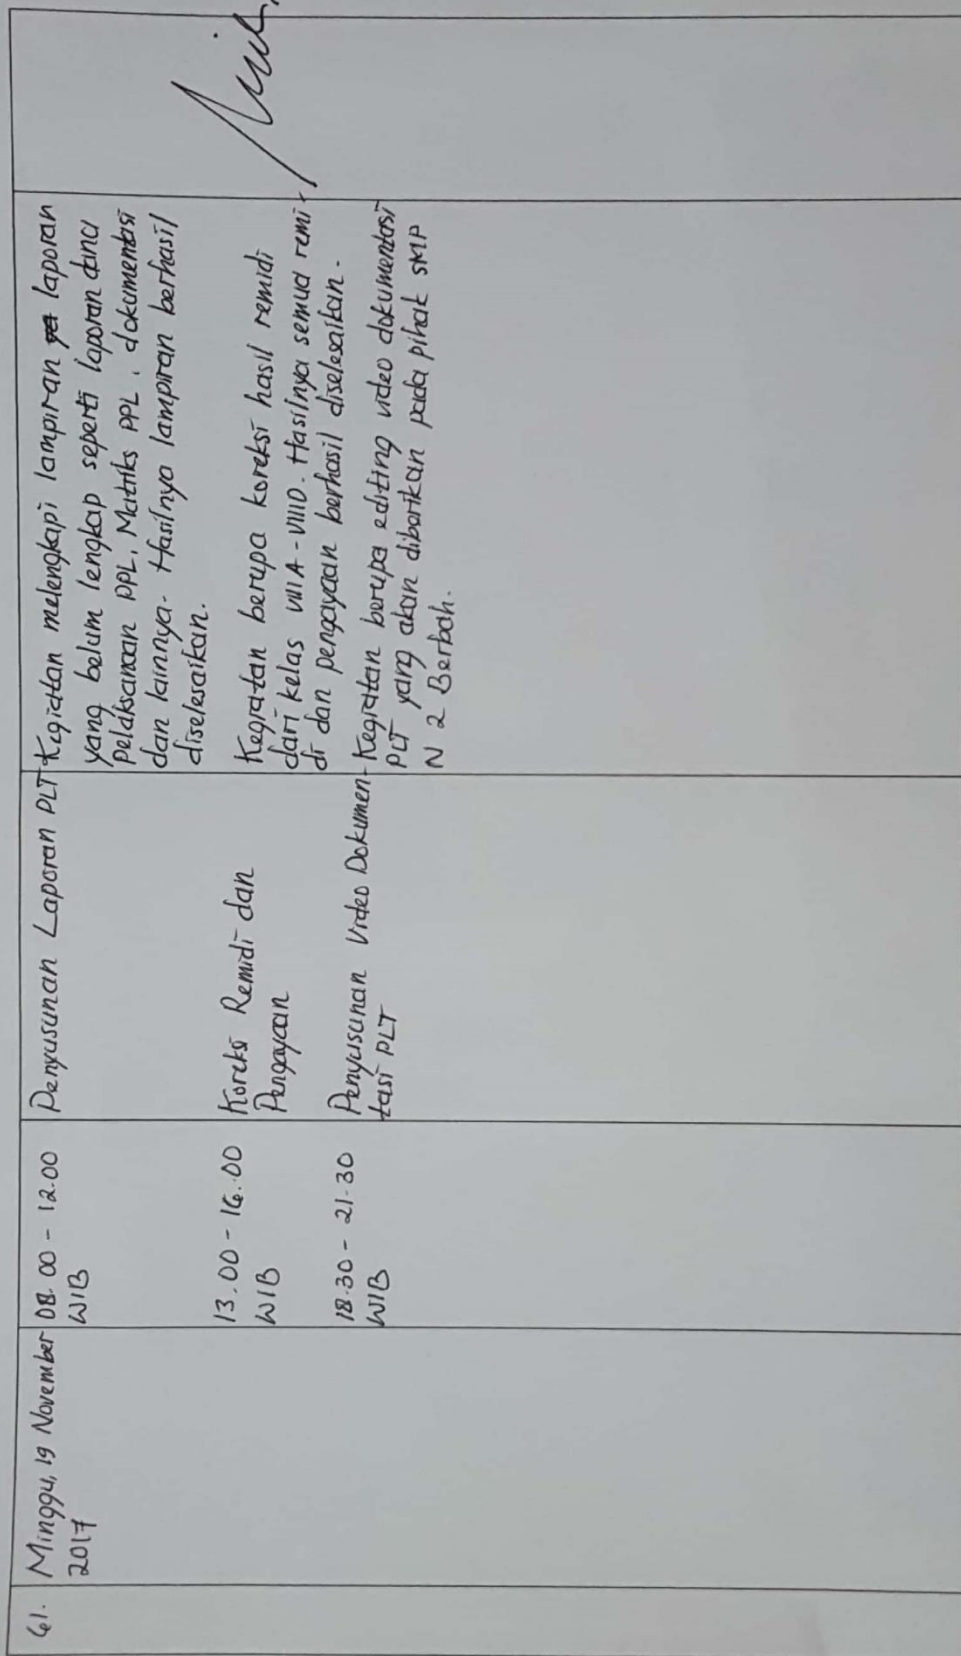 61.
Minggu, 19 November
2017
08.00 - 12.00
WIB
Penyusunan Laporan PLT
Kegiatan melengkapi lampiran laporan
yang belum lengkap seperti laporan dana
pelaksanaan PPL, Matriks PPL, dokumentasi
dan lainnya. Hasilnya lampiran berhasil
diselesaikan.
13.00 - 16.00
WIB
Koreksi Remidi dan
Pengayaan
Kegiatan berupa koreksi hasil remidi
dari kelas VIII A - VIII D. Hasilnya semua remi-
di dan pengayaan berhasil diselesaikan.
18.30 - 21.30
WIB
Penyusunan Video Dokumen-
tasi PLT
Kegiatan berupa editing video dokumentasi
PLT yang akan diberikan pada pihak SMP
N 2 Berbah.